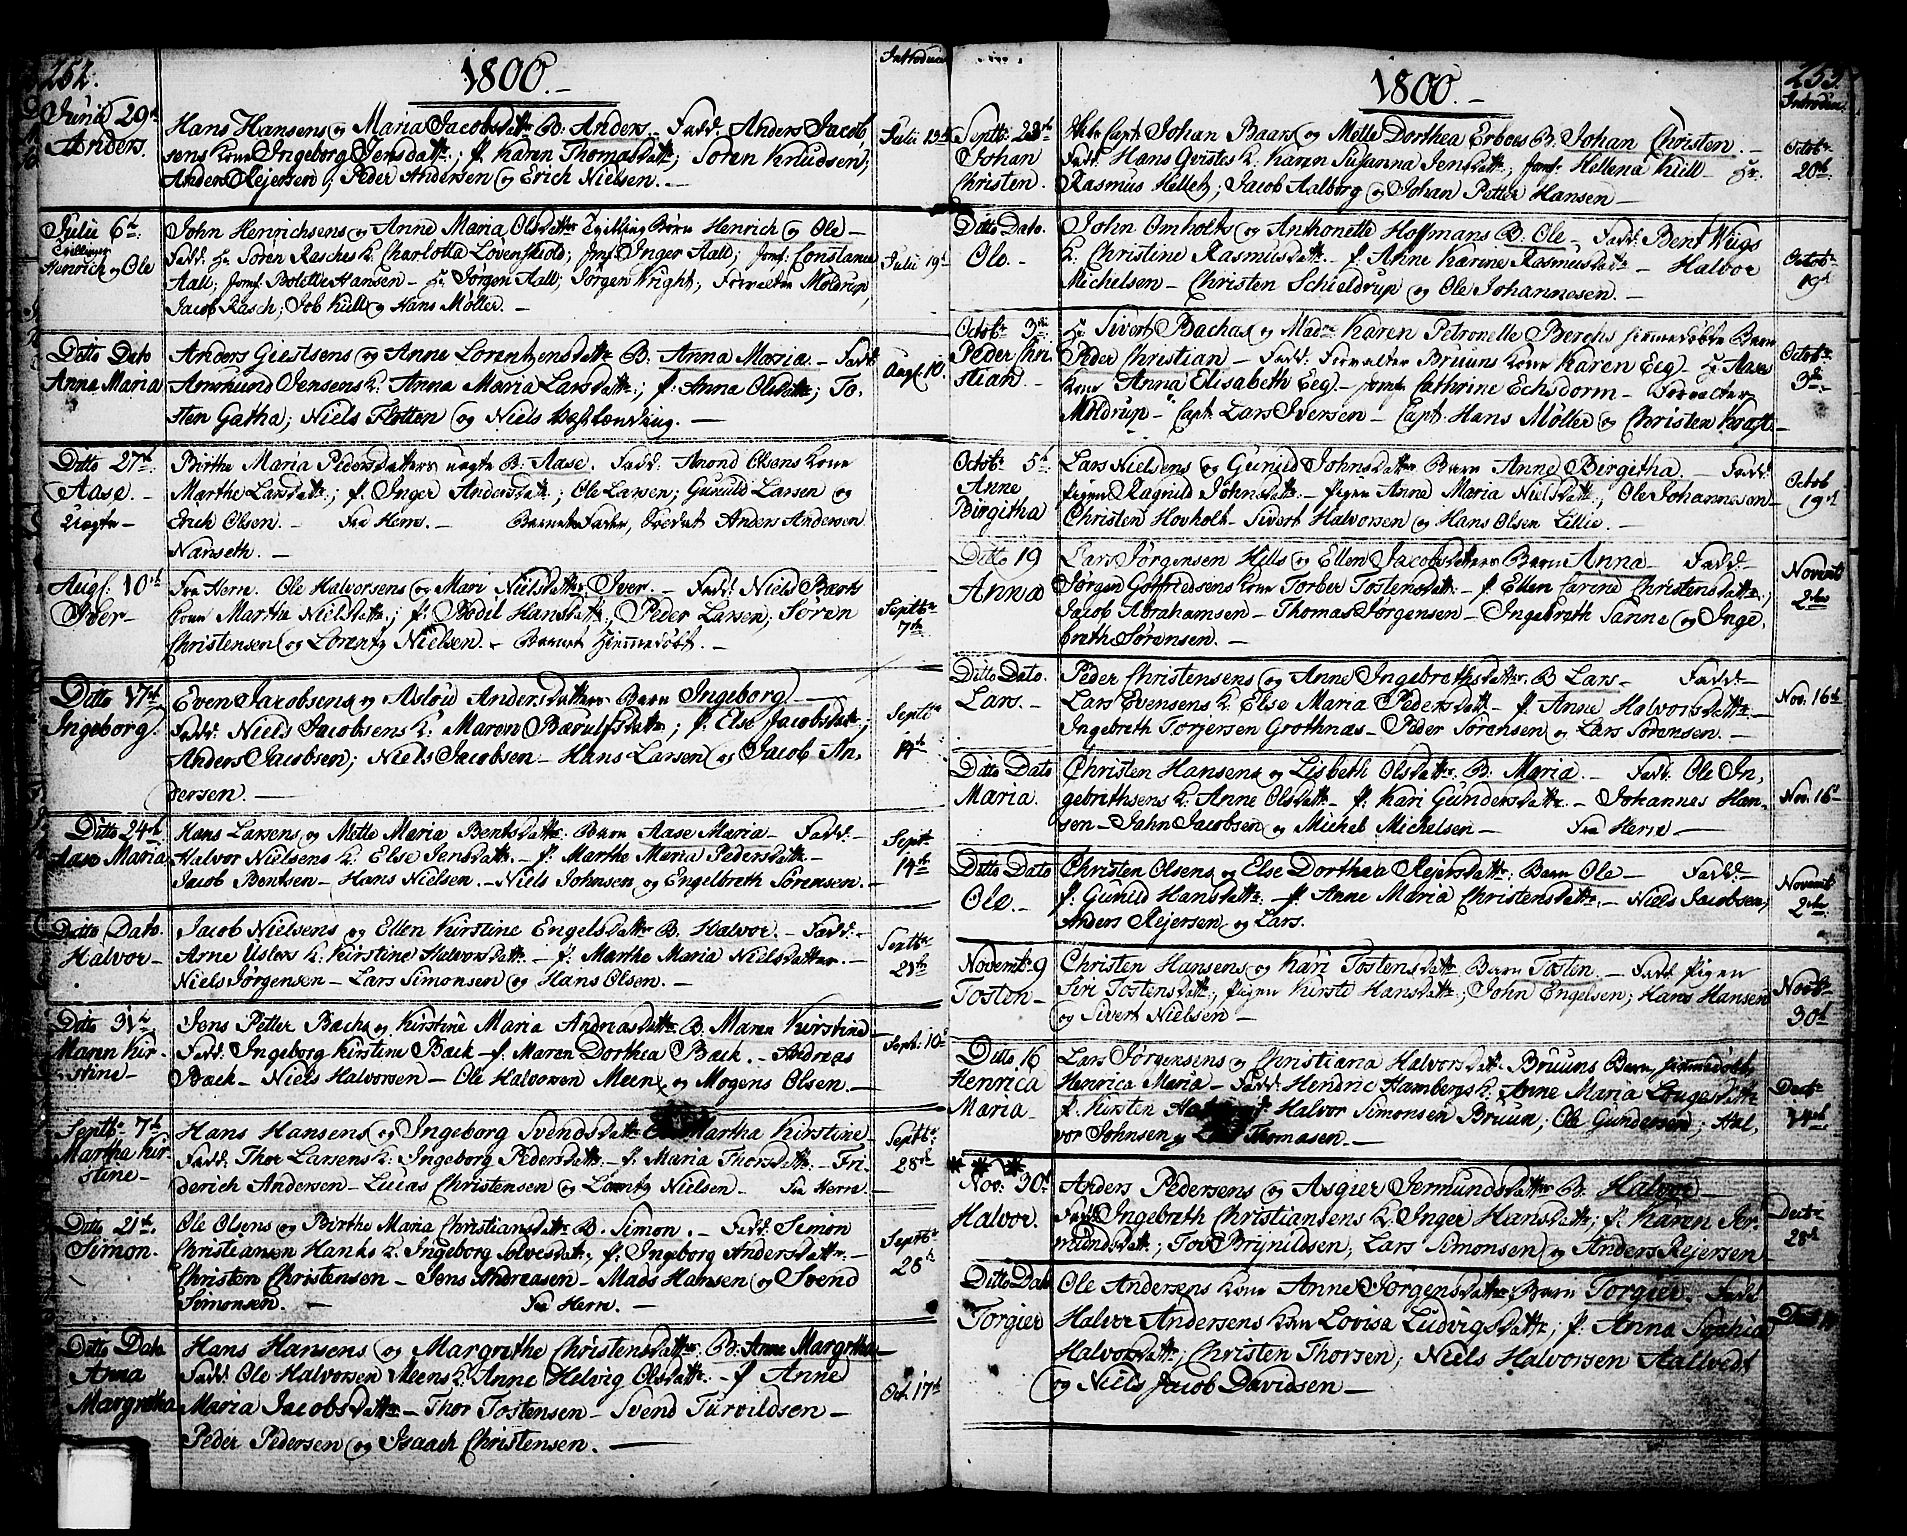 252.
1800.
Introduc:
Junii 29d
Anders.
Hans Hansens og Maria Jacobsdattr B: Anders. Fadd: Anders Jacob,
sens kone Ingeborg Jensdattr; p. Karen Thomasdattr; Sören Knudsen;
Anders Rejersen; Peder Andersen og Erich Nielsen. —
Julii 13d
Julii 6d
Tvillinger
Henrich og Ole
John Henrichsens og Anne Maria Olsdatter Tvilling Börn Henrich og Ole —
Fadd: Hr Sören Rasches K: Charlotta Lövenskiold; Jomf: Inger Aall; Jomf: Constance
Aall; Jomf: Bolette Hansen — Hr Jörgen Aall; Jörgen Wright; Forvalter Moldrup,
Jacob Rasch; Job Küll og Hans Möller. —
Julii 19d
Ditto Dato
Anna Maria
Anders Giertsens og Anne Lorentzensdattr B: Anna Maria — Fadd:
Amskund Jensens K: Anna Maria Larsdattr; p: Anna Olsdattr; To-
sten Gatha; Niels Flotten og Niels —
Augf: 10.
Ditto 27d
Aase. —
Uegte —
Birthe Maria Pedersdatters uegte B: Aase. Fadd: Anond Olsens kone
Marthe Larsdattr; p: Inger Andersdattr; Ole Larsen; Gunuld Larsen og
Erich Olsen. — Fra Herre. — Barnets Fader, Anders Andersen
Nanseth. —
Augf: 10d
Iver —
Fra Herre. Ole Halvorsens og Mari Nielsdatter Iver — Fadd: Niels Bærts
kone Marthe Nielsdattr; p: Bodil Hansdattr; Peder Larsen; Sören
Christensen og Lorentz Nielsen. — Barnet hiemmedöbt. —
Septbr
7de
Ditto 17d
Ingeborg.
Even Jacobsens og Asloug Andersdatters Barn Ingeborg. —
Fadd: Niels Jacobsens K: Maren Bærulfsdattr; p: Else Jacobsdattr;
Anders Jacobsen; Niels Jacobsen — Hans Larsen og Jacob An,
dersen. —
Septbr
14de
Ditto 24d
Aase Maria
Hans Larsens og Mette Maria Bentsdattr: Barn Aase Maria — Fadd: —
Halvor Nielsens K: Else Jensdattr. — p: Marthe Maria Pedersdattr —
Jacob Bentsen — Hans Nielsen. — Niels Johnsen og Engelbreth Sörensen. —
Septbr
14de
Ditto Dato.
Halvor —
Jacob Nielsens og Ellen Kirstine Engelsdattr B: Halvor. — Fadd: —
Arne Usters K: Kirstine Halvorsdattr. — p: Marthe Maria Nielsdatter. —
Niels Jörgensen — Lars Simonsen og Hans Olsen. —
Septbr
21de
Ditto 31te
Maren Kir-
stine —
Jens Petter Bachs og Kirstine Maria Andreasdattr B: Maren Kirstine —
Fadd: Ingeborg Kirstine Bach — p: Maren Dorthea Bach. — Andreas
Bach — Niels Halvorsen — Ole Halvorsen Meen, og Mogens Olsen. —
Septbr: 10d
Septbr 7d
Marthe Kir
stine —
Hans Hansens og Ingeborg Svendsdattr Martha Kirstine —
Fadd: Thor Larsens K: Ingeborg Pedersdattr — p: Maria Thorsdattr — Fri-
derich Andersen — Lucas Christensen og Lorentz Nielsen — Fra Herre —
Septbr
28d
Ditto 21de:
Simon.
Ole Olsens og Birthe Maria Christiansdattr B: Simon. — Fadd: Simon
Christiansen Hanks K: Ingeborg Solvesdattr; p: Ingeborg Andersdattr —
Christen Christensen — Jens Andreasen — Mads Hansen og Svend
Simonsen. — Fra Herre. —
Septbr
28d
Ditto Dato
Anna
Margretha
Hans Hansens og Margrethe Christensdattr: B: Anne Margretha —
Fadd: Ole Halvorsen Meens K: Anne Helvig Olsdattr — p: Anne
Maria Jacobsdattr — Thor Tostensen — Svend Turvildsen —
Peder Pedersen og Isaach Christensen. —
Oct. 17d
253.
1800. —
Introduc:
Septbr 28d
Johan
Christen.
Hr Capt: Johan Baars og Mdlle Dorthea Erboes B: Johan Christen. —
Fadd: Hans Qvistes K: Karen Susanna Jensdattr; Jomf: Hellena Küll — Hr:
Rasmus Hellet; Jacob Aalborg og Johan Petter Hansen —
Octobr
20de
Ditto Dato.
Ole. —
John Omholts og Anthonette Hoffmans B: Ole — Fadd: Bent Wiigs
K: Christine Rasmusdattr — p: Anne Karine Rasmusdattr — Halvor
Michelsen — Christen Schieldrup og Ole Johannesen. —
Octobr
19d
Octobr 3die
Peder Chri
stian. —
Hr Sivert Bachas og Madme Karen Petronelle Berchs hiemmedöbte Barn
Peder Christian — Fadd: Forvalter Bruuns kone Karen Eeg — Hr Aases
kone Anna Elisabeth Eeg — Jomf: Cathrine Echsdorm — Forvalter
Moldrup — Capt: Lars Iversen — Capt: Hans Möller og Christen Kraft —
Octobr
3die
Octobr 5d
Anne
Birgitha
Lars Nielsens og Gunild Johnsdattrs Barn Anne Birgitha. — Fadd:
Pigen Ragnild Johnsdattr — Pigen Anne Maria Nielsdattr; Ole Johannesen —
Christen Hovholt — Sivert Halvorsen og Hans Olsen Lillie. —
Octob
19d
Ditto 19
Anna
Lars Jörgensen Hells og Ellen Jacobsdatters Barn Anna — Fadd: —
Jörgen Gotfriedsens kone Torber Tostensdattr — p: Ellen Carine Christensdattr;
Jacob Abrahamsen — Thomas Jörgensen — Ingebreth Sanne og Inge,
breth Sörensen. —
Novemb
2den
Ditto Dato.
Lars. —
Peder Christensens og Anne Ingebrethsdattr: B Lars — Fadd: —
Lars Evensens K: Elise Maria Pedersdattr — p: Anne Halvorsdattr —
Ingebreth Torjersen Grothnæs — Peder Sörensen og Lars Sörensen. —
Nov: 16d
Ditto Dato
Maria.
Christen Hansens og Lisbeth Olsdattr: B: Maria. — Fadd: Ole In,
gebrethsens K: Anne Olsdattr — p: Kari Gundersdattr — Johannes Han-
sen — Jahn Jacobsen og Michel Michelsen — Fra Herre —
Nov: 16d
Ditto Dato
Ole. —
Christen Olsens og Else Dorthea Rejersdattr; Barn Ole — Fadd: —
p: Gunild Hansdattr — p: Anne Maria Christensdattr. — Niels Jacobsen,
Anders Rejersen og Lars.
Novemb
2den
Novembr 9
Tosten —
Christen Hansens og Kari Tostensdattr. Barn Tosten. — Fadd: Pigen
Siri Tostensdattr, Pigen Kirsti Hansdattr; John Engelsen; Hans Hansen
og Sivert Nielsen —
Novbr
30d
Ditto 16
Henrica
Maria —
Lars Jörgensens og Christiana Halvorsdat: Bruuns Barn hiemmedöbt
Henrica Maria — Fadd: Hendric Hambergs K: Anne Maria Lougesdattr
p: Kirsten p: Halvor Simonsen Bruun; Ole Gundersen; Hal,
vor Johnsen og Thomasen. —
Decbr
14d
Nov: 30d
Halvor.
Anders Pedersens og Asgier Jermundsdattr B: Halvor —
Fadd: Ingebreth Christiansens K: Inger Hansdattr; p: Karen Jer-
mundsdattr; Tov Brynildsen; Lars Simonsen og Anders Rejersen
Decbr
28d
Ditto Dato
Torgier
Ole Andersens kone Anne Jörgensdattr; Barn Torgier. Fadd
Halvor Andersens kone Lovisa Ludvigsdattr; p: Anna Sophia
Halvorsdattr; Christen Thorsen; Niels Halvorsen Aallvedt
og Niels Jacob Davidsen —